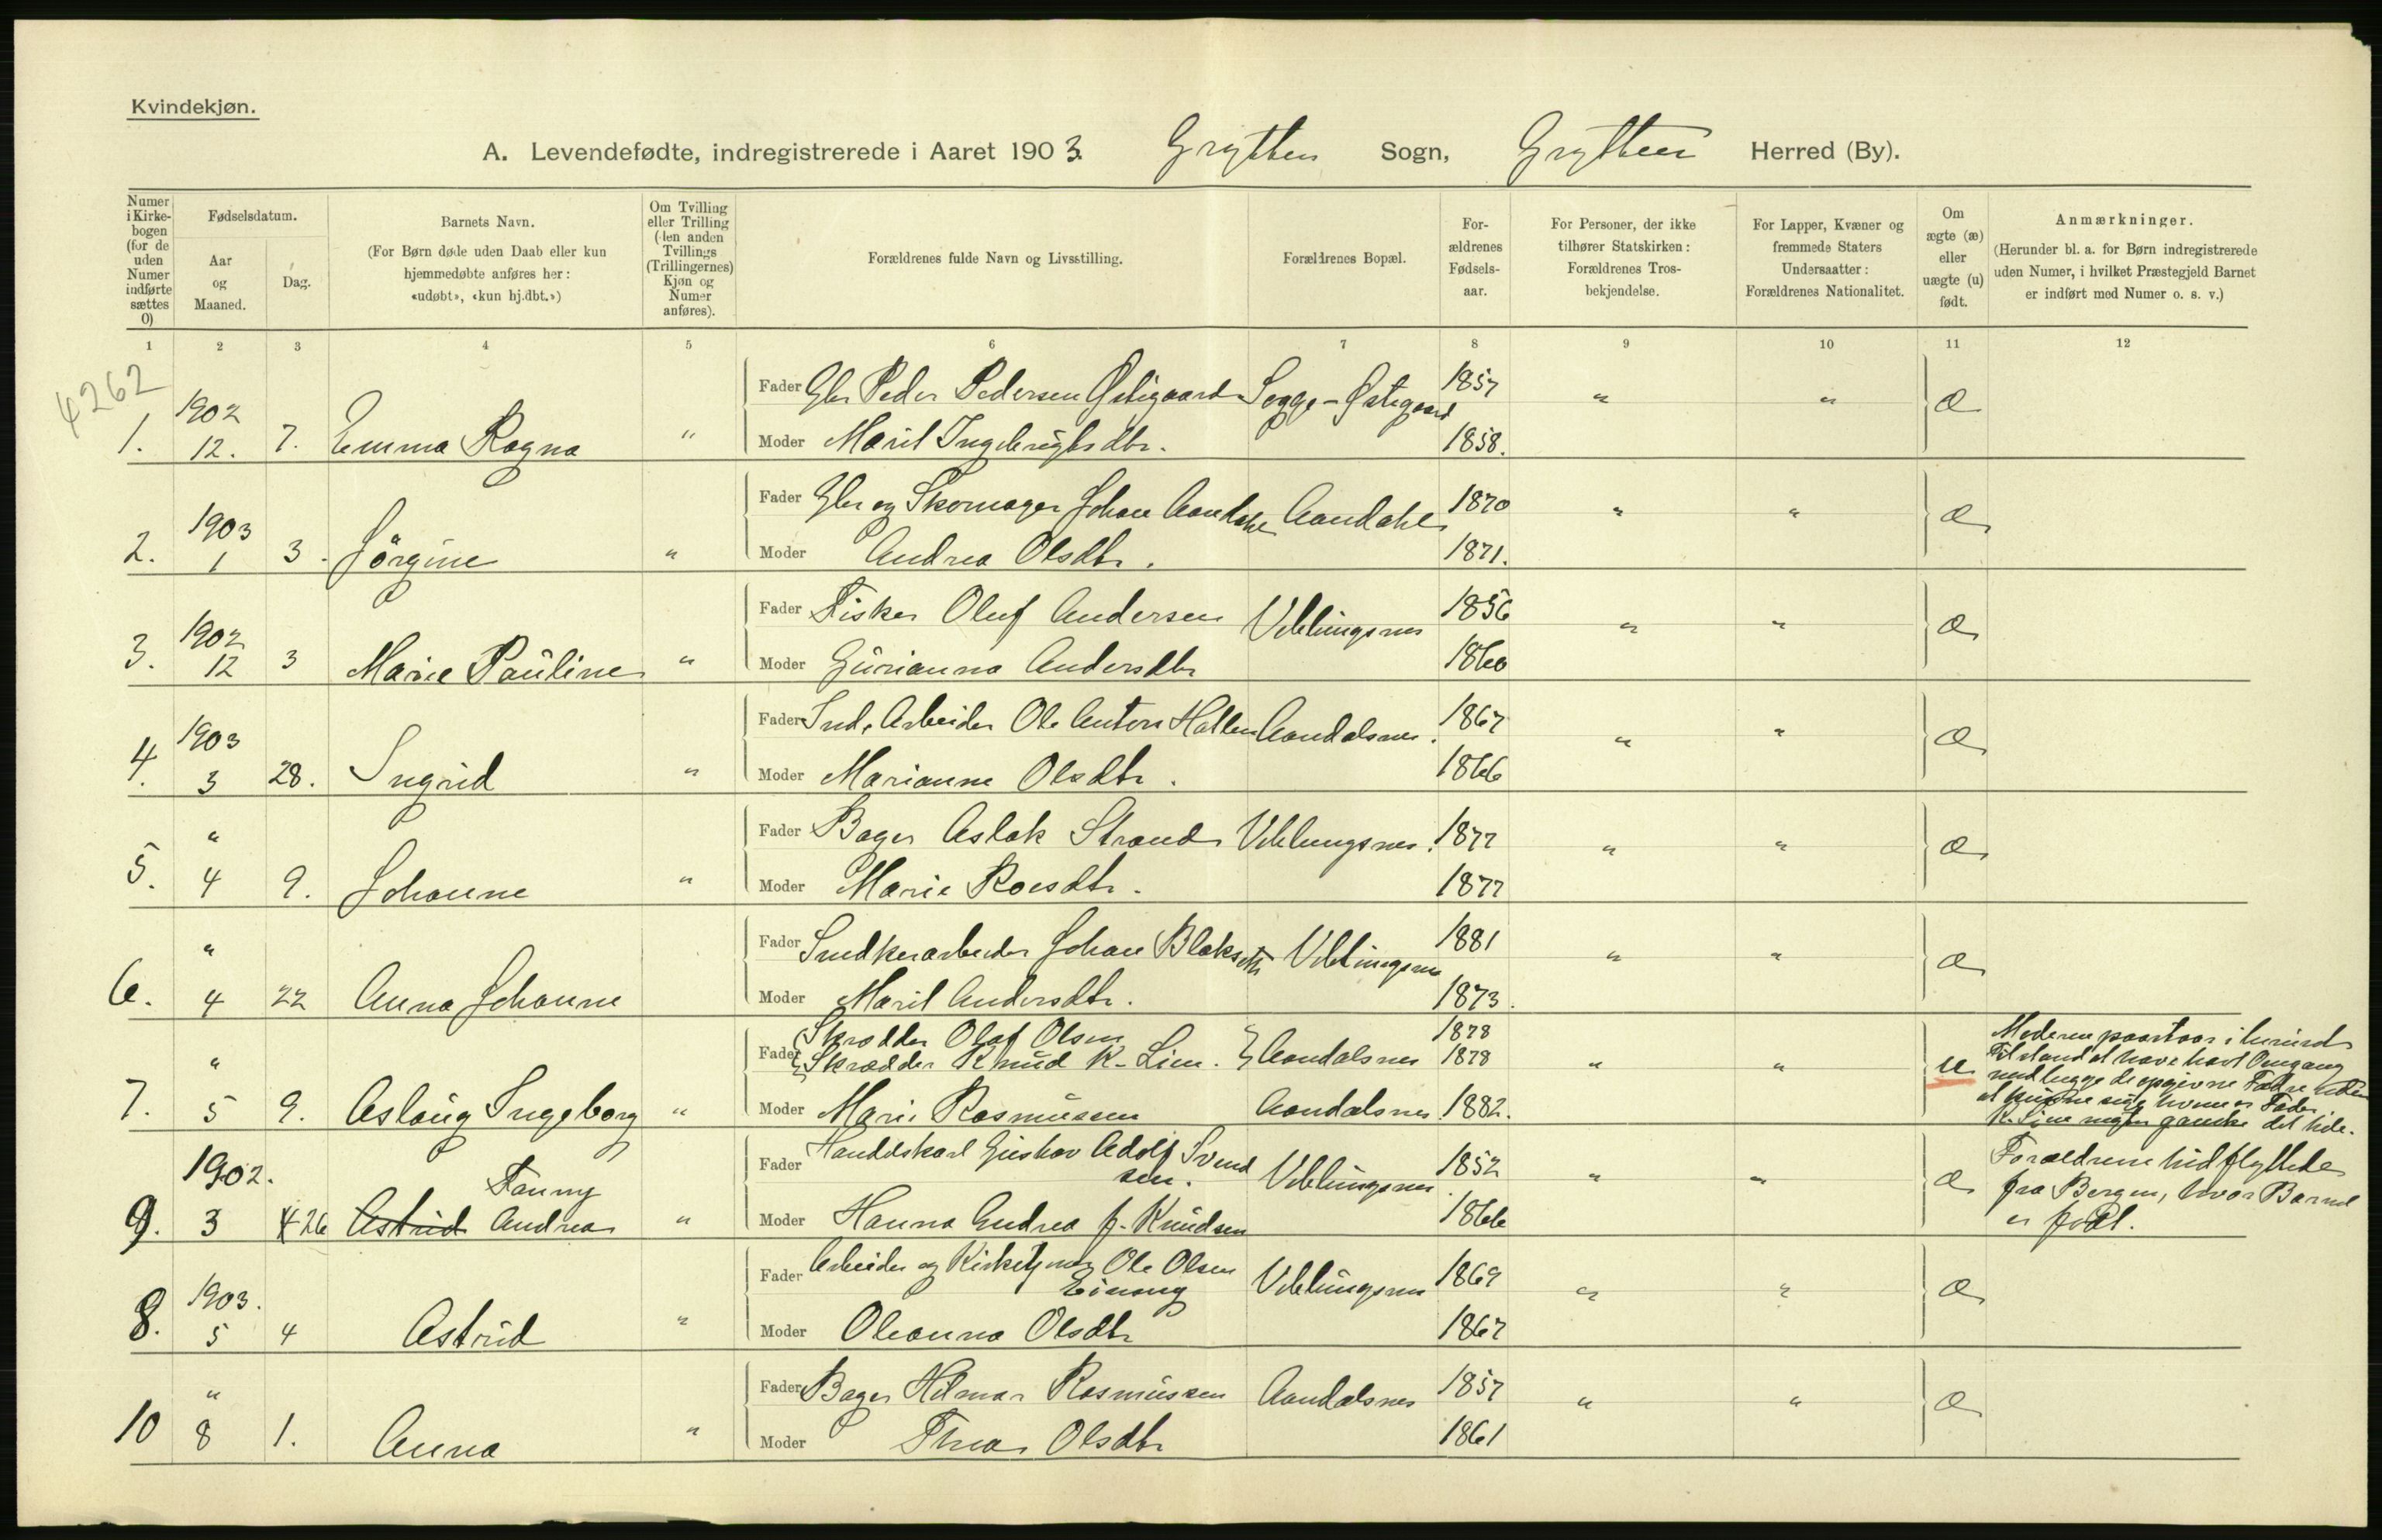 Kvindekjøn.
A. Levendefødte, indregistrerede i Aaret 1903. Grytten Sogn, Grytten Herred (By).
Numer i Kirkebogen (for de uden Numer indførte sættes 0)
Fødselsdatum.
Aar og Maaned.
Dag.
Barnets Navn.
(For Børn døde uden Daab eller kun hjemmedøbte anføres her: «udøbt», «kun hj.dbt.»)
Om Tvilling eller Trilling (den anden Tvillings (Trillingernes) Kjøn og Numer anføres).
Forældrenes fulde Navn og Livsstilling.
Forældrenes Bopæl.
Forældrenes Fødselsaar.
For Personer, der ikke tilhører Statskirken: Forældrenes Trosbekjendelse.
For Lapper, Kvæner og fremmede Staters Undersaatter: Forældrenes Nationalitet.
Om ægte (æ) eller uægte (u) født.
Anmærkninger.
(Herunder bl. a. for Børn indregistrerede uden Numer, i hvilket Præstegjeld Barnet er indført med Numer o. s. v.)
1 2 3 4 5 6 7 8 9 10 11 12
4262
Fader Gbr Peder Pedersen Østigaard Sogge-Østigaard 1857 " " æ
1. 1902 12. 7. Emma Ragna " Moder Marit Ingebrigtsdtr. 1858.
Fader Gbr og Skomager Johan Aandahl Aandahl 1870 " " æ
2. 1903 1 3. Jörgine " Moder Andrea Olsdtr. 1871.
Fader Fisker Oluf Andersen Veblungsnes 1856 " " æ
3. 1902 12 3 Marie Pauline " Moder Gurianna Andersdtr 1860
Fader Snd. Arbeider Ole Anton Hatlen Aandalsnes. 1867 " " æ
4. 1903 3 28. Ingrid " Moder Marianne Olsdtr. 1866
Fader Bager Aslak Strand Veblungsnes. 1877 " " æ
5. " 4 9. Johanne " Moder Marie Roesdtr. 1877
Fader Snedkerarbeider Johan Blakseth Veblungsnes 1881 " " æ
6. " 4 22 Anna Johanne Moder Marit Andersdtr. 1873.
Fader Skrædder Olaf Olsen 1878
Skrædder Knud K. Lien. Aandalsnes 1878 " " u
7. " 5 9. Aslaug Ingeborg " Moder Marie Rasmussen Aandalsnes 1882.
Moderen paastaar i
Tilstand at have havt Omgang
med begge de opgivne Fædre uden
at kunne sige hvem er Fader
K. Lien negter ganske det hele.
Fader Handelskarl Gustav Adolf Svendsen. Veblungsnes. 1852 " " æ
9. 1902. 3 4 26 Astrid Fanny Andrea " Moder Hanna Andrea f. Knudsen 1866
Forældrene hidflyttede
fra Bergen, hvor Barnet
er født.
Fader Arbeider og Kirketjener Ole Olsen Einang Veblungsnes 1869 " " æ
8. 1903. 5 4 Astrid " Moder Oleanna Olsdtr 1867
Fader Bager Hilmar Rasmussen Aandalsnes 1857 " " æ
10 " 8 1. Anna " Moder Thea Olsdtr 1861